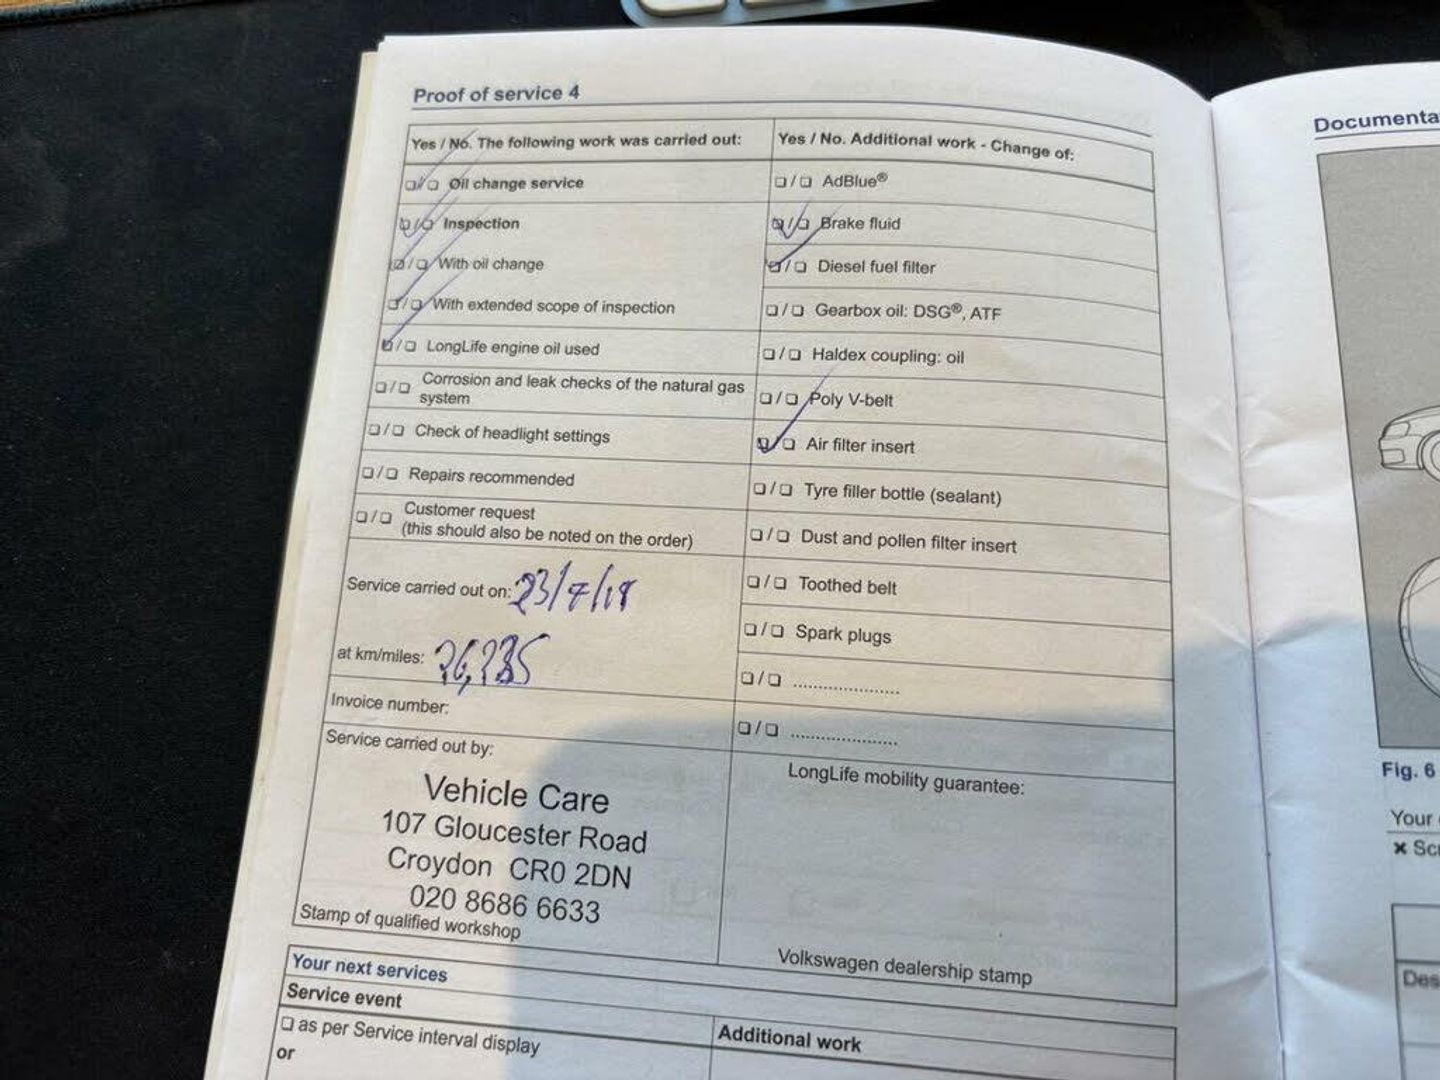 Proof of service 4
Yes / No. The following work was carried out:
❏/❏ Oil change service
❏/❏ Inspection
❏/❏ With oil change
❏/❏ With extended scope of inspection
❏/❏ LongLife engine oil used
❏/❏ Corrosion and leak checks of the natural gas
system
❏/❏ Check of headlight settings
❏/❏ Repairs recommended
❏/❏ Customer request
(this should also be noted on the order)
Service carried out on: 23/7/18
at km/miles:
Invoice number:
Service carried out by:
Vehicle Care
107 Gloucester Road
Croydon CR0 2DN
020 8686 6633
Stamp of qualified workshop
Yes / No. Additional work - Change of:
❏/❏ AdBlue®
❏/❏ Brake fluid
❏/❏ Diesel fuel filter
❏/❏ Gearbox oil: DSG®, ATF
❏/❏ Haldex coupling: oil
❏/❏ Poly V-belt
❏/❏ Air filter insert
❏/❏ Tyre filler bottle (sealant)
❏/❏ Dust and pollen filter insert
❏/❏ Toothed belt
❏/❏ Spark plugs
❏/❏ ......................
❏/❏ ......................
LongLife mobility guarantee:
Volkswagen dealership stamp
Your next services
Service event
❏ as per Service interval display
or
Additional work
Documenta
Fig. 6
Your
✖ Scr
Des